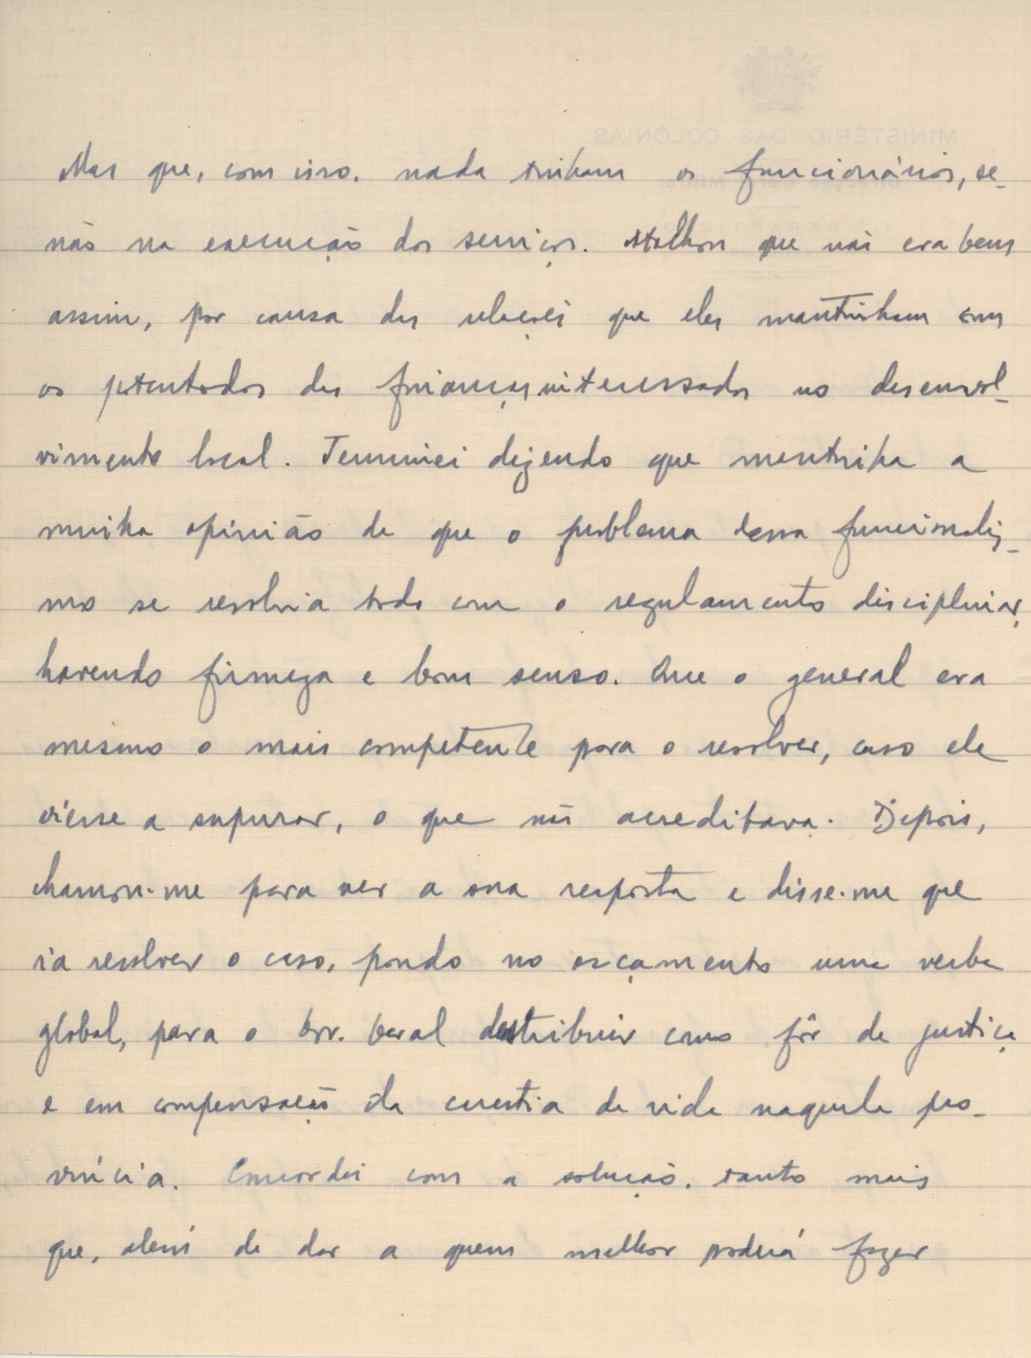 Mas que, com isso, nada tinham os funcionários, se-
não na execução dos serviços. Melhor que não era bem
assim, por causa das relações que eles mantinham com
os potentados das finanças interessados no desenvol-
vimento local. Terminei dizendo que mantinha a
minha opinião de que o problema dessa funcionalis-
mo se resolvia todo com o regulamento disciplinar,
havendo firmeza e bom senso. Que o general era
mesmo o mais competente para o resolver, caso ele
viesse a supurar, o que não acreditava. Depois,
chamou-me para ver a sua resposta e disse-me que
ia resolver o caso, pondo no orçamento uma verba
global, para o Gov. Geral distribuir como fôr de justiça
e em compensação da carestia de vida naquela pro-
vincia. Concordei com a solução, tanto mais
que, alem de dar a quem melhor poderá fazer
MINISTÉRIO DAS COLÓNIAS